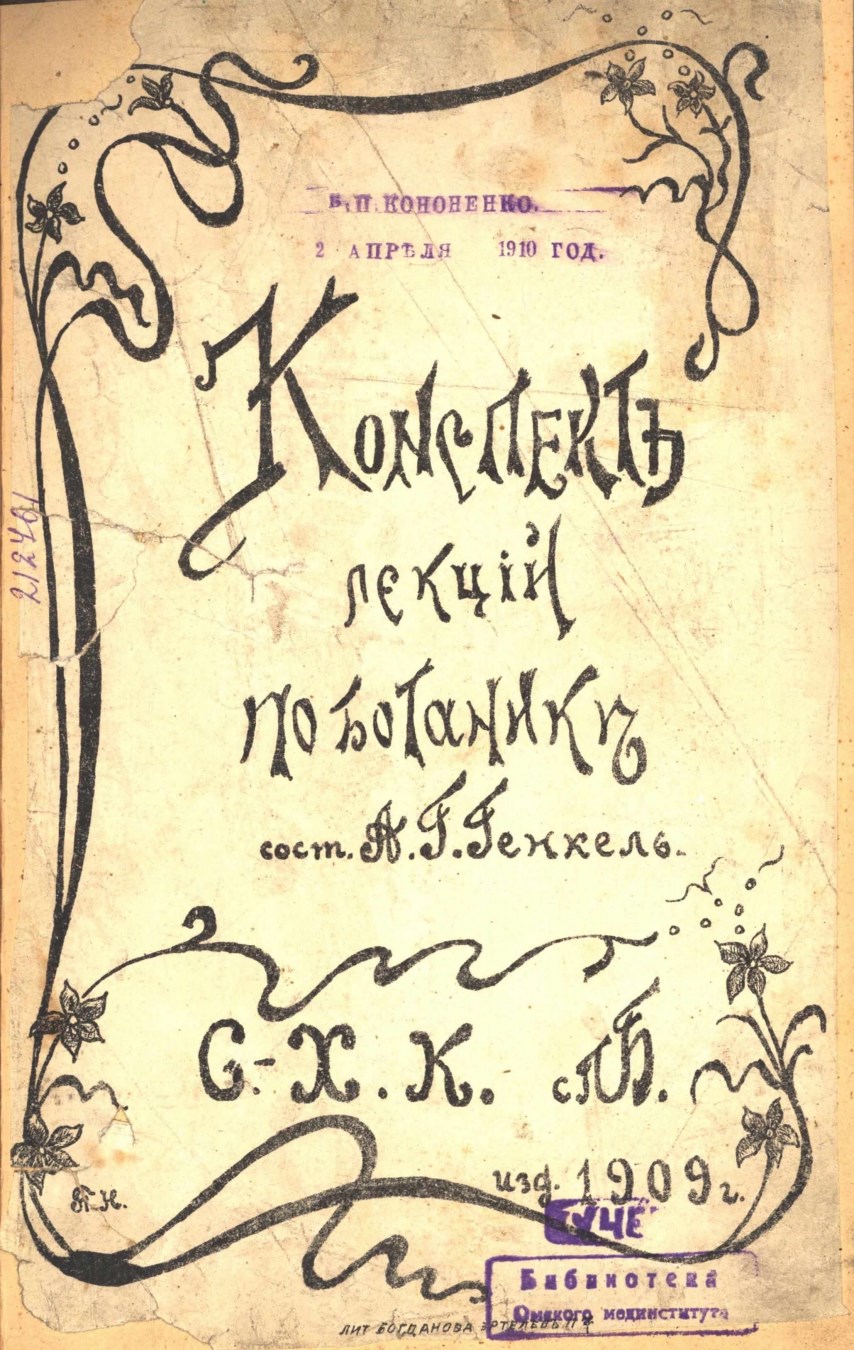 Б.П. КОНОНЕНКО.
2 АПРѢЛЯ 1910 ГОД.
Конспектъ
лекцій
по ботаникѣ
сост. А. Г. Генкель.
С.-Х. К. СПБ.
изд. 1909 г.
П. Н.
212401
Библиотека
Омского мединститута
ЛИТ БОГДАНОВА ЭРТЕЛЕВЪ П